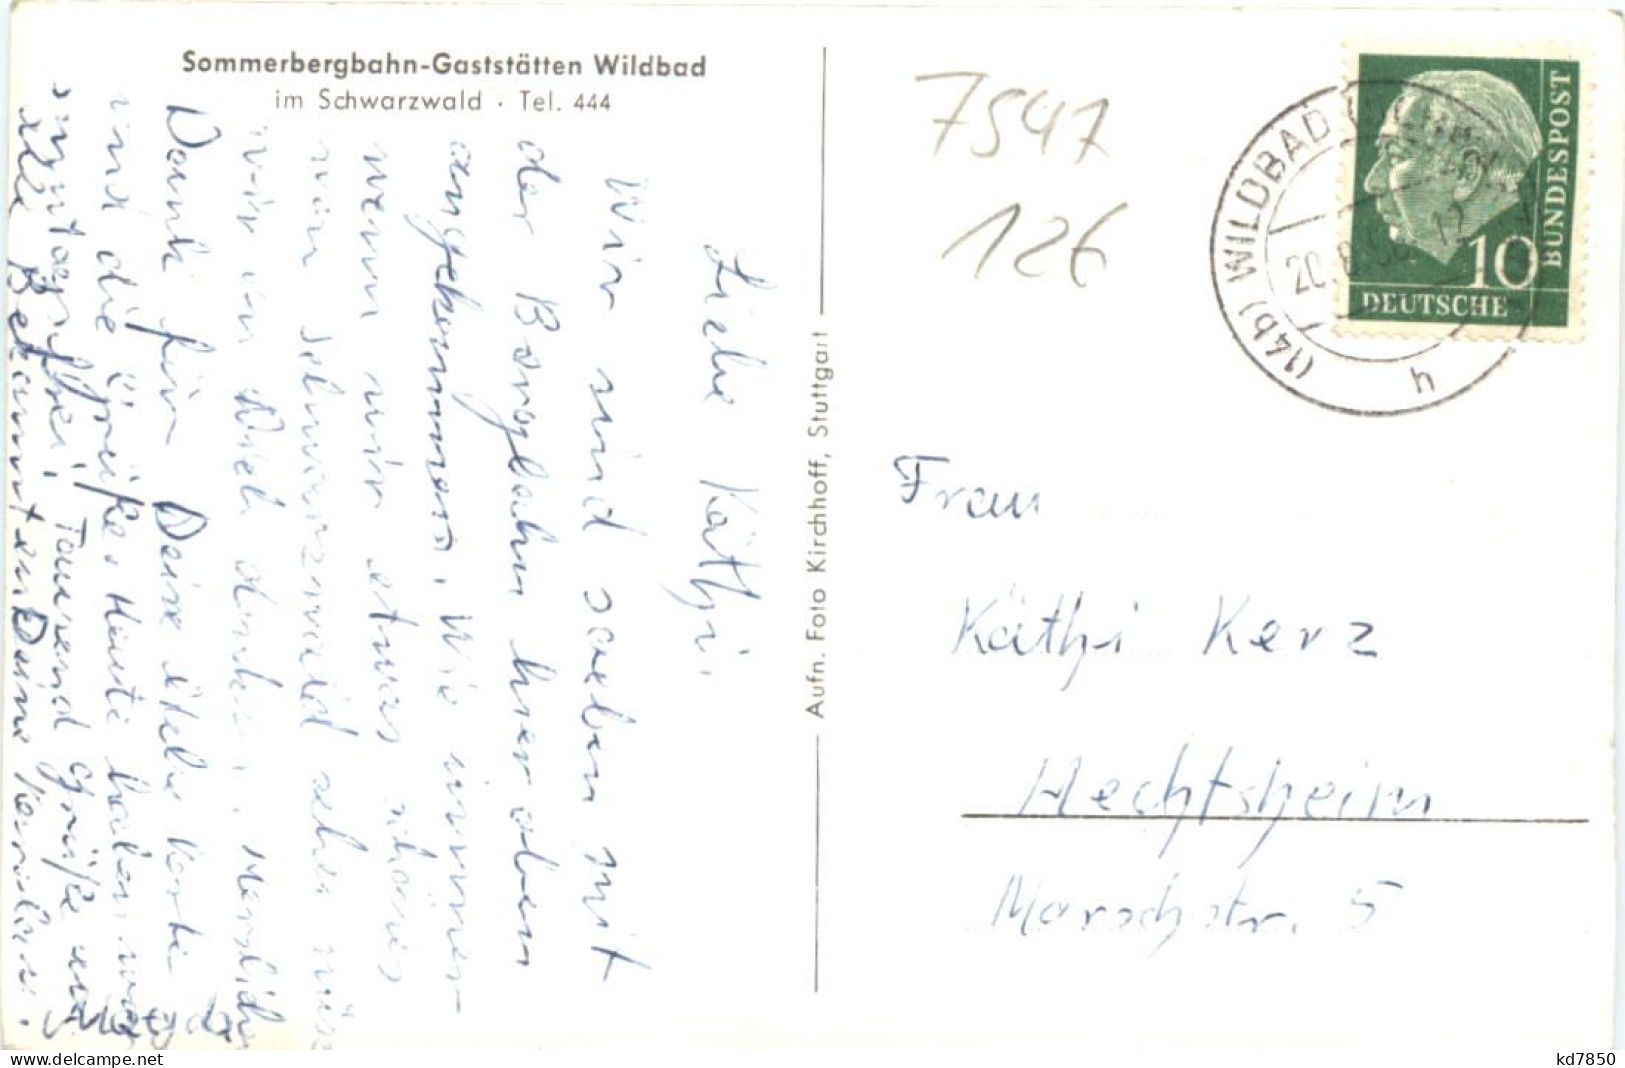 Sommerbergbahn-Gaststätten Wildbad
im Schwarzwald · Tel. 444
Liebe Käthi.
Wir sind soeben mit
der Bergbahn hier oben
angekommen. Wie immer
wenn wir etwas schönes
vom Schwarzwald sehen müs
wir an Dich denken. Herzliche
Dank für Deine liebe Karte
und die Grüße. Heute haben wir
Tausend Grüße
alle Bekannten Deine
Aufn. Foto Kirchhoff, Stuttgart
7547
126
(14b) WILDBAD
20. 12
h
10
DEUTSCHE
BUNDESPOST
Frau
Käthi Kerz
Hechtsheim
Morschstr. 5
www.delcampe.net
kd7850